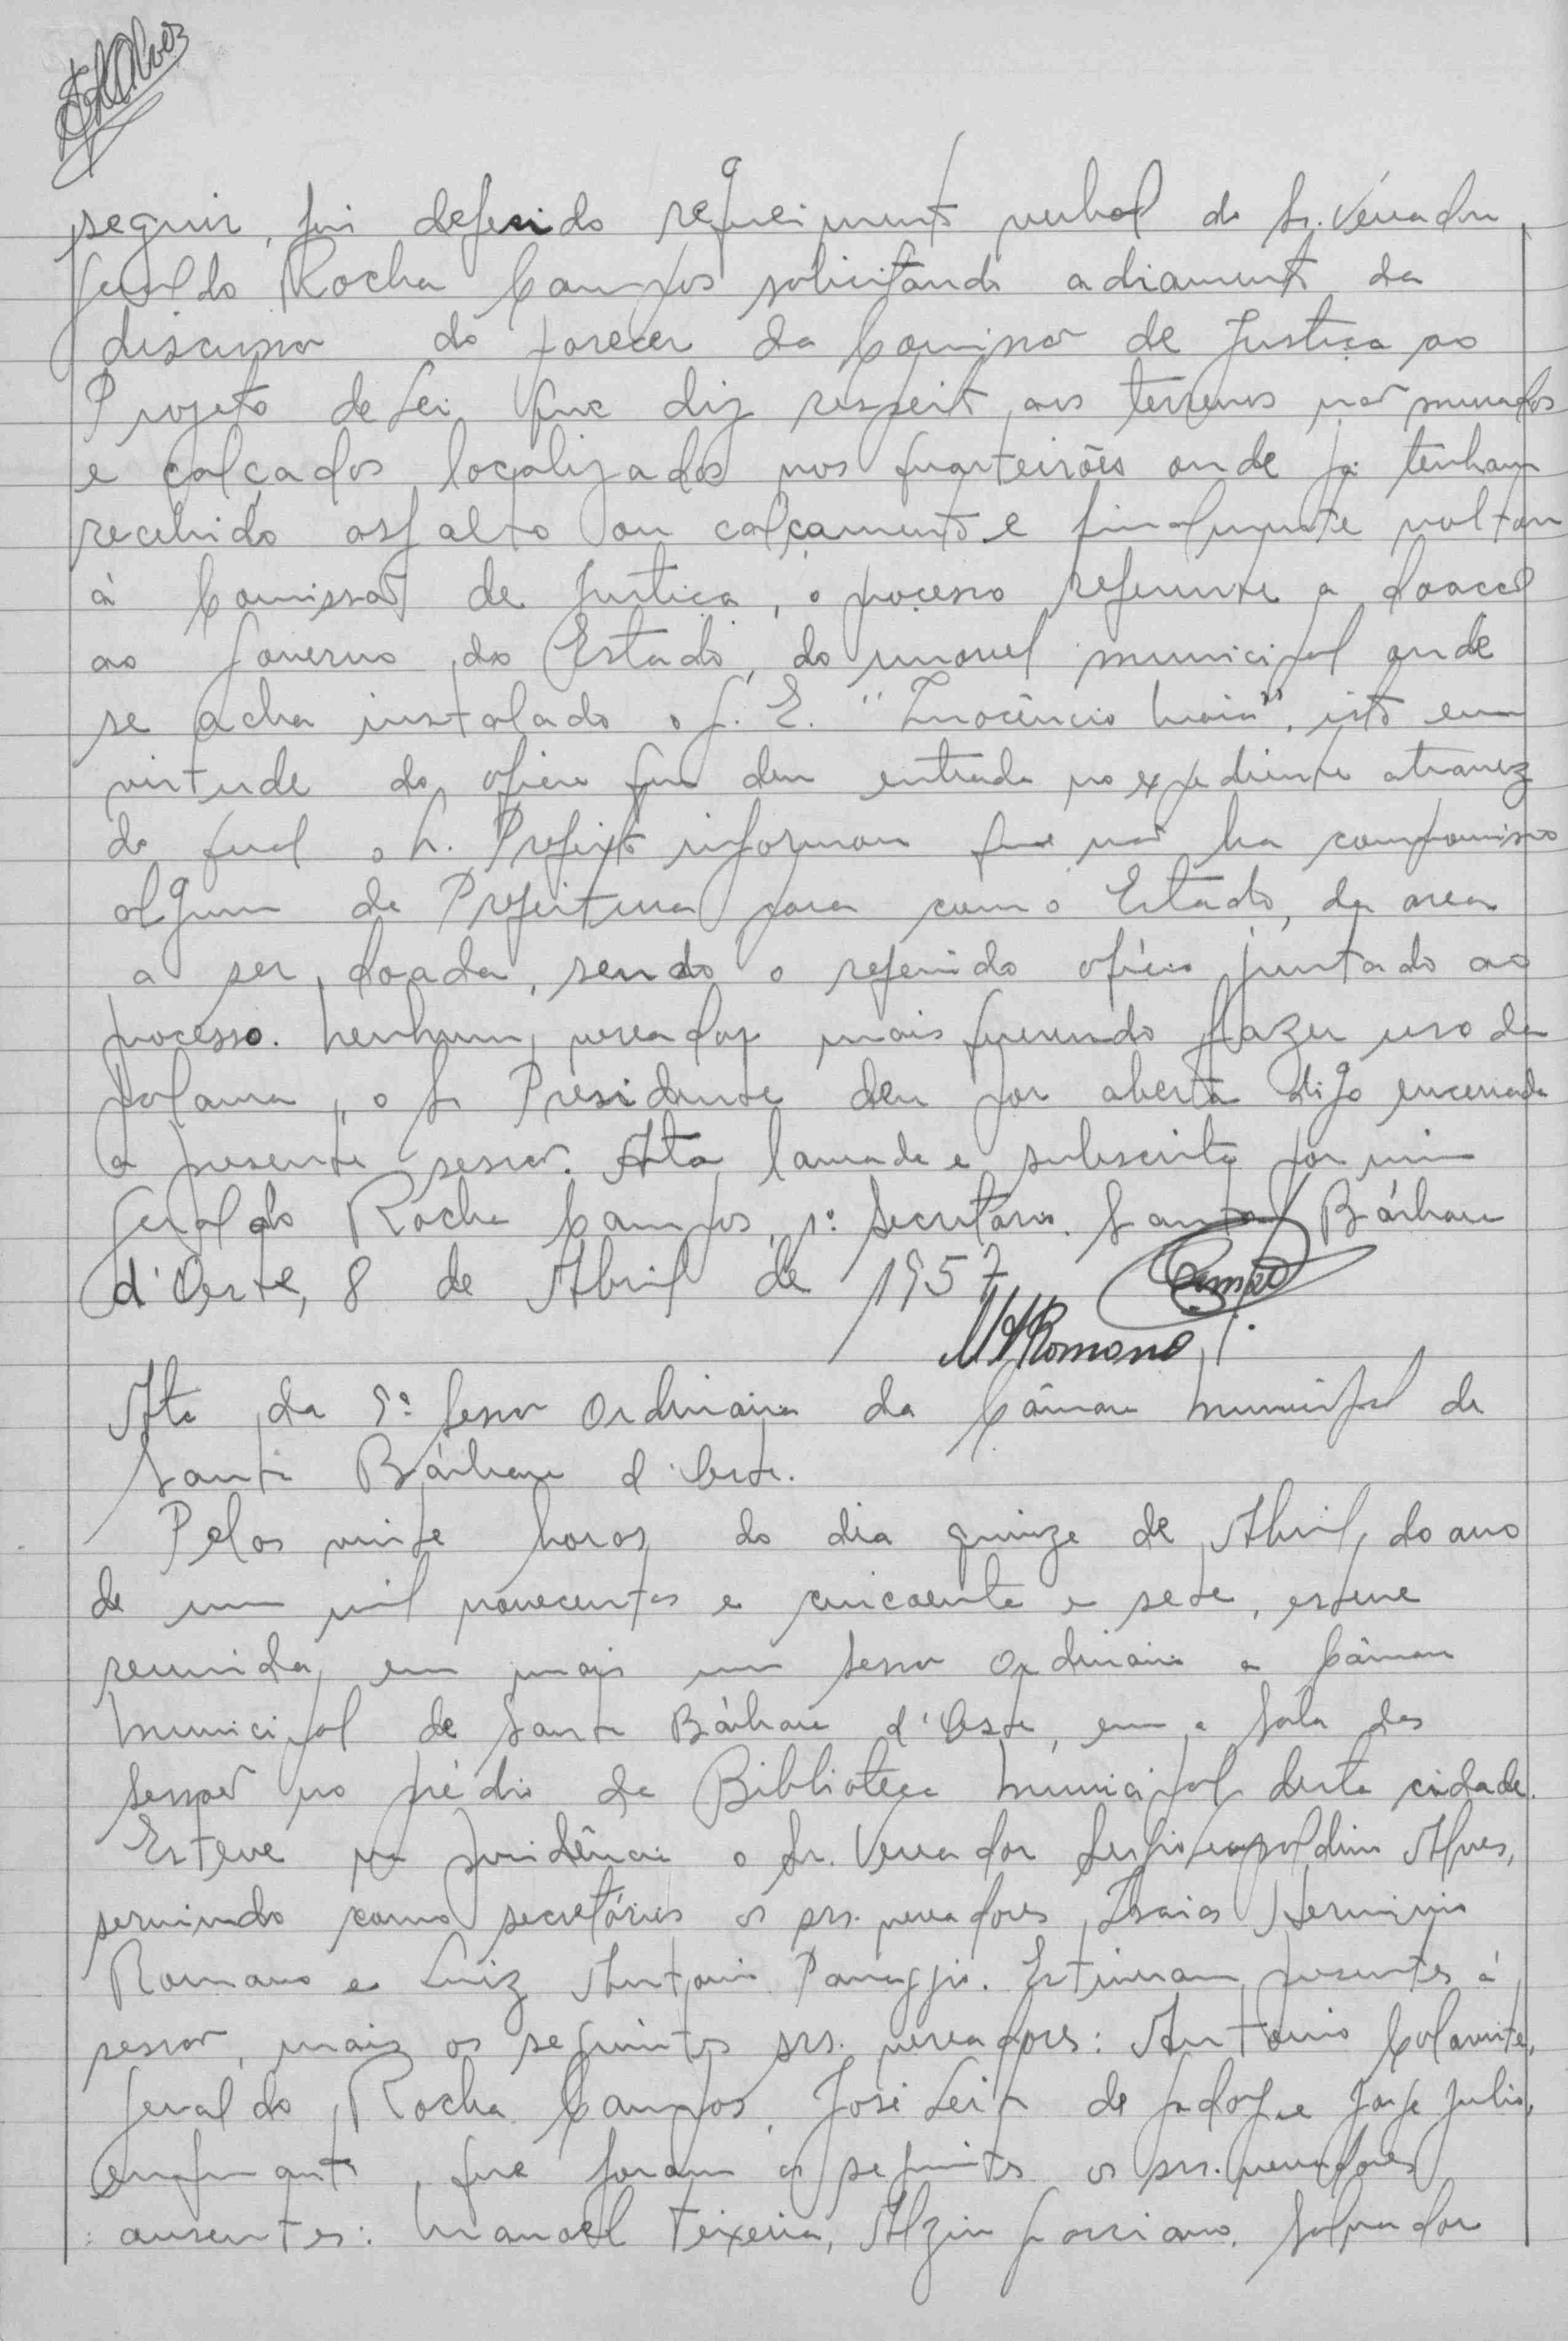 seguir, foi deferido requeimento verbal do Sr. Vereador
Geraldo Rocha Campos solicitando adiamento da
discussão do parecer da Comissão de Justiça ao
Projeto de Lei que diz respeito aos terrenos não murados
e calçados localizados nos quarteirões onde já tenham
recebido asfalto ou calçamento e finalmente voltou
à Comissão de Justiça, o processo referente a doacel
ao Governo do Estado, do imovel municipal onde
se acha instalado o G. E. "Inocêncio Maia", isto em
virtude do oficio que deu entrada no expediente atravez
do qual o Sr. Prefeito informou que não ha compromisso
algum da Prefeitura para com o Estado, da area
a ser doada, sendo o referido oficio juntado ao
processo. Nenhum vereador mais querendo fazer uso da
palavra, o Sr Presidente deu por aberta digo encerrada
a presente sessão. Ata lavrada e subscrita por mim
Geraldo Rocha Campos, 1º Secretário. Santa Bárbara
d'Oeste, 8 de Abril de 1957
Campos
M A Romano
Ata da 9ª Sessão Ordinária da Câmara Municipal de
Santa Bárbara d'Oeste.
Pelas vinte horas do dia quinze de Abril, do ano
de um mil novecentos e cincoenta e sete, esteve
reunida, em mais um Sessão Ordinária a Câmara
Municipal de Santa Bárbara d'Oeste, em a Sala das
Sessões no prédio da Biblioteca Municipal desta cidade.
Esteve na presidência o Sr. Vereador Sergio Leopoldino Alves,
servindo como secretários os srs. vereadores, Isaias Herminio
Romano e Luiz Antonio Panaggio. Estiveram presentes à
sessão, mais os seguintes srs. vereadores: Antonio Colavite,
Geraldo Rocha Campos, José Leite de Godoy e Jorge Julio,
enquanto, que foram os seguintes os srs. vereadores
ausentes: Manoel Teixeira, Alzir Graciano, Salvador